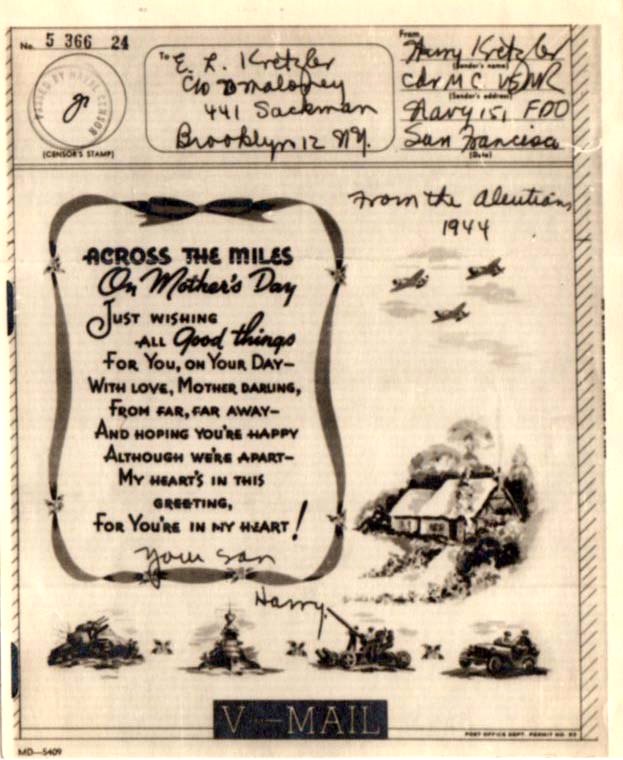 No. 5 366 24
PASSED BY NAVAL CENSOR
(CENSOR'S STAMP)
To E. L. Kretzler
c/o Maloney
441 Sackman
Brooklyn 12 N.Y.
From
Harry Kretzler
(Sender's name)
Cdr M C USNR
(Sender's address)
Navy 151 FPO
San Francisco
(Date)
From the Aleutians
1944
ACROSS THE MILES
On Mother's Day
JUST WISHING
ALL Good things
FOR YOU, ON YOUR DAY—
WITH LOVE, MOTHER DARLING,
FROM FAR, FAR AWAY—
AND HOPING YOU'RE HAPPY
ALTHOUGH WE'RE APART—
MY HEART'S IN THIS
GREETING,
FOR YOU'RE IN MY HEART!
Your son
Harry
V···—MAIL
POST OFFICE DEPT. PERMIT NO.
MD—5409